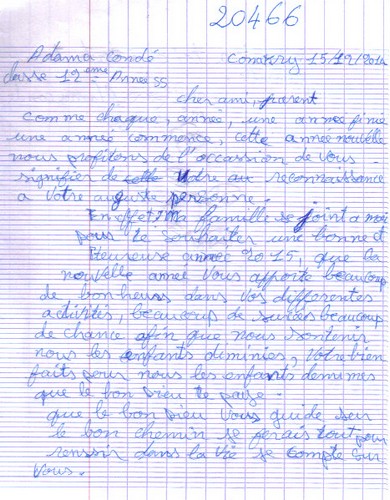 20466
Adama Condé Conakry 15/12/2014
classe 12ème Année SS
cher ami, parent
comme chaque, année, une année finie
une année commence, cette année nouvelle
nous profitons de l'occassion de vous
signifier de notre au reconnaissance
a votre auguste personne.
En effet ma famille se joint a moi
pour te souhaiter une bonne et
Heureuse année 2015, que la
nouvelle année vous apporte beaucoup
de bonheurs dans vos differentes
activités, beaucoup de succès beaucoup
de chance afin que nous soutenir
nous les enfants diminies, votre bien
faits pour nous les enfants demimes
que le bon Dieu te paye -
que le bon Dieu vous guide sur
le bon chemin je ferais tout pour
reussir dans la vie je compte sur
vous.